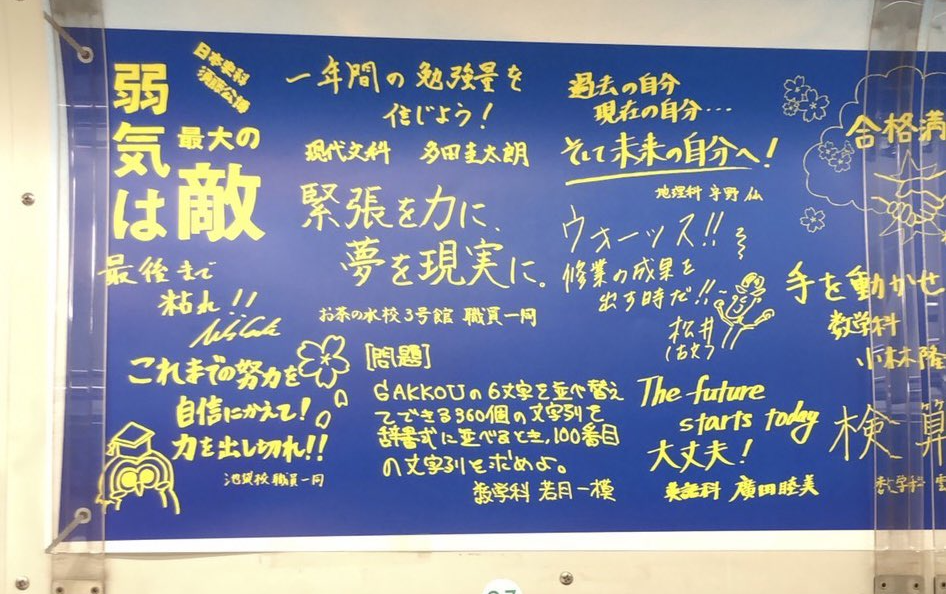 弱気は
最大の
敵
日本史科
最後まで
粘れ!!
これまでの努力を
自信にかえて!
力を出し切れ!!
池袋校 職員一同
一年間の勉強量を
信じよう!
現代文科 多田圭太朗
緊張を力に、
夢を現実に。
お茶の水校3号館 職員一同
[問題]
GAKKOUの6文字を並べ替え
てできる360個の文字列を
辞書式に並べるとき,100番目
の文字列を求めよ。
数学科 若月一模
過去の自分
現在の自分…
そして未来の自分へ!
地理科 宇野 仏
ウォーッス!!
修業の成果を
出す時だ!!
松井
(古文)
The future
starts today
大丈夫!
英語科 廣田睦美
合格満
手を動かせ
数学科
小林隆
検算
数学科